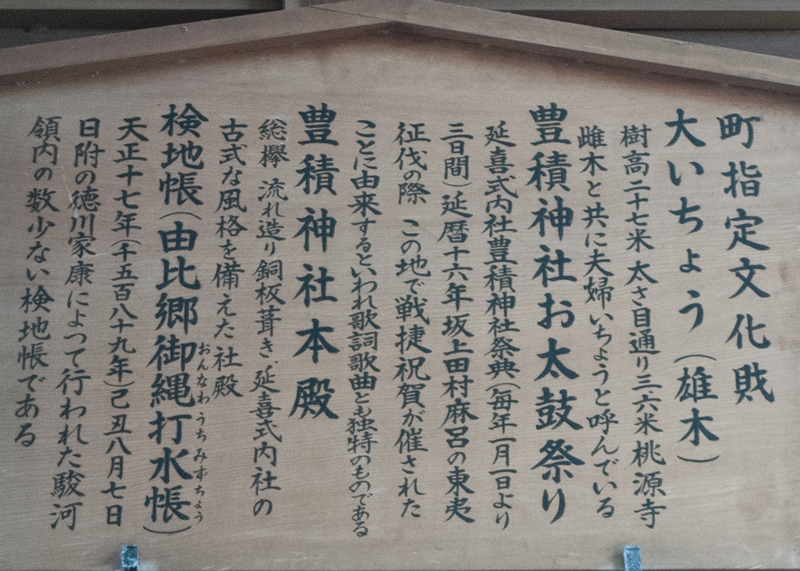 町指定文化財
大いちょう（雄木）
樹高二十七米 太さ目通り三六米 桃源寺
雌木と共に夫婦いちょうと呼んでいる
豊積神社お太鼓祭り
延喜式内社豊積神社祭典（毎年一月一日より
三日間）延暦十六年坂上田村麻呂の東夷
征伐の際 この地で戦捷祝賀が催された
ことに由来するといわれ歌詞歌曲とも独特のものである
豊積神社本殿
総欅 流れ造り銅板葺き 延喜式内社の
古式な風格を備えた社殿
検地帳（由比郷御縄打水帳）
おんなわうちみずちょう
天正十七年（千五百八十九年）己丑八月七日
日附の徳川家康によつて行われた駿河
領内の数少ない検地帳である